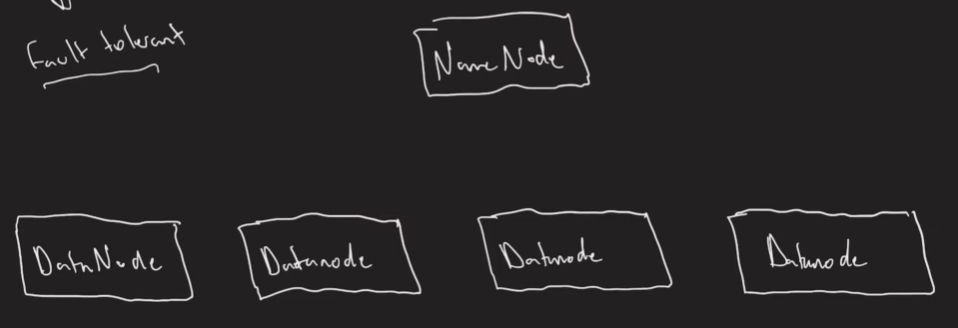 Fault tolerant
NameNode
DataNode
Datanode
Datanode
Datanode